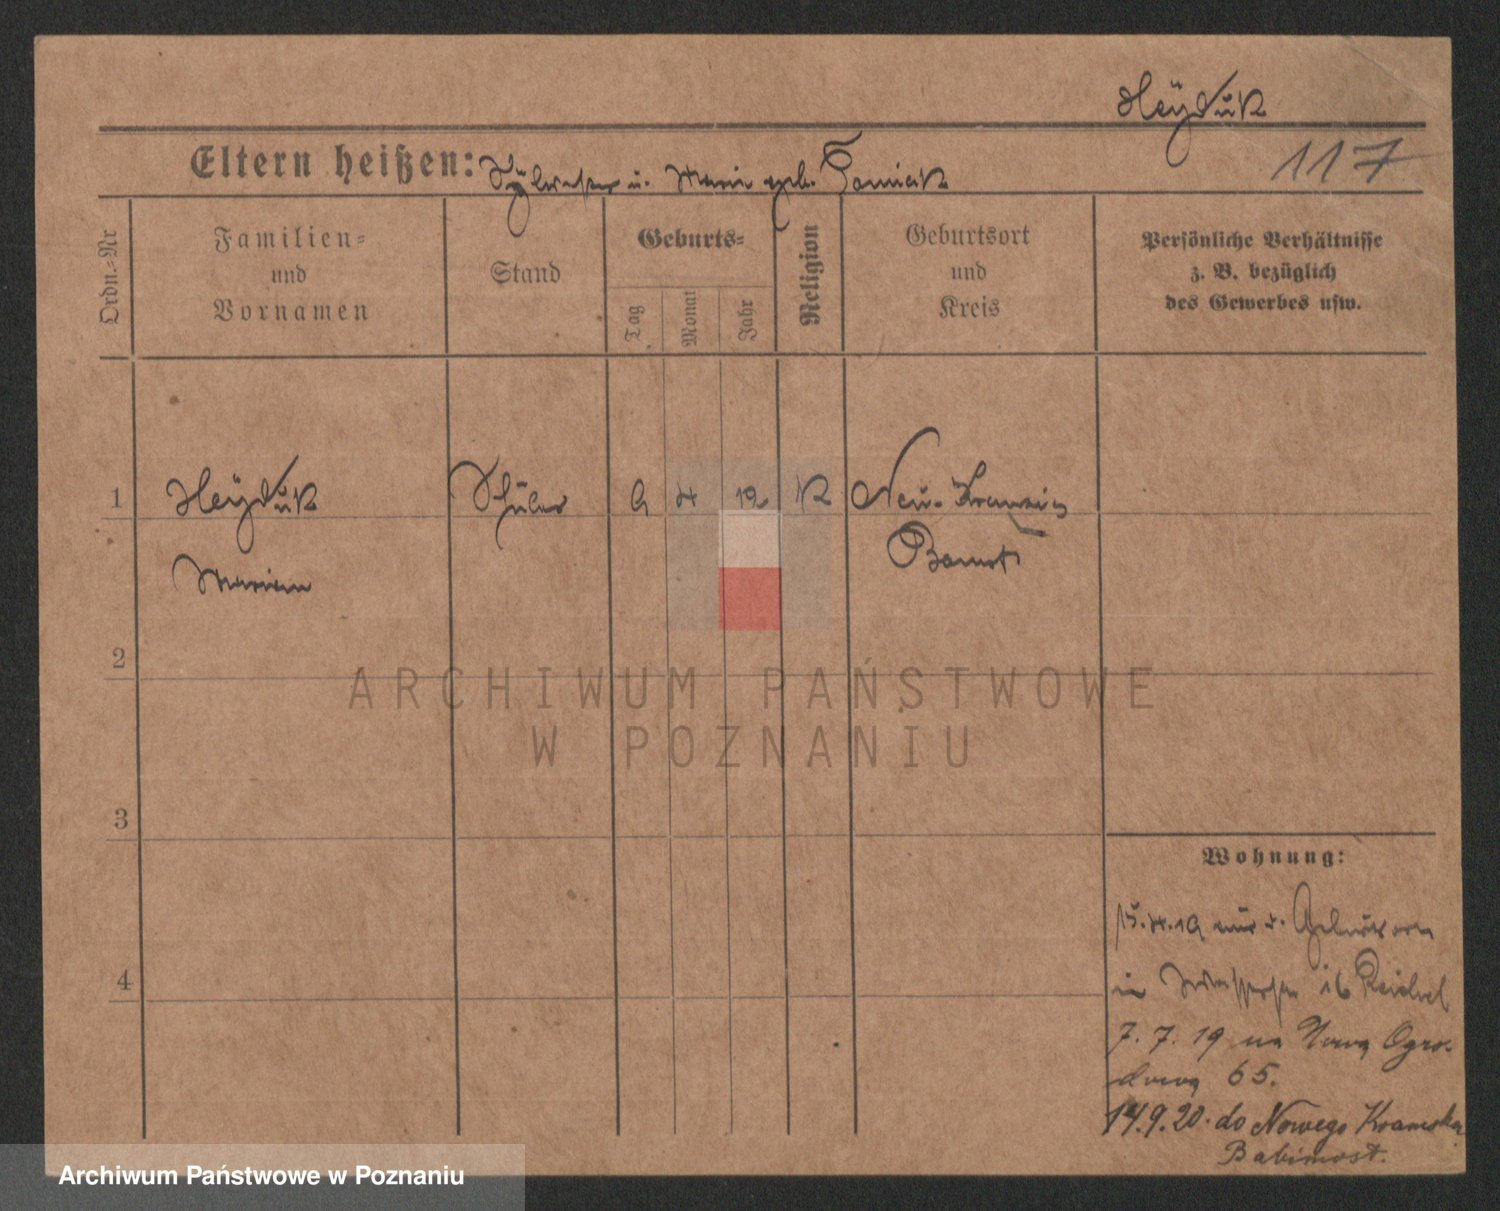 Heÿduk
117
Eltern heißen: Sÿlvester u. Marie geb. Tomiak
Ordn.-Nr
Familien-
und
Vornamen
Stand
Geburts-
Tag
Monat
Jahr
Religion
Geburtsort
und
Kreis
Persönliche Verhältnisse
z. B. bezüglich
des Gewerbes usw.
1
Heÿduk Schüler 9 4 12 K Neu-Kramzig
Marian Bomst
2
3
4
ARCHIWUM PAŃSTWOWE
W POZNANIU
Wohnung:
15.4.19 aus d. Geburtsort
in 16 Reichel
7. 7. 19 na Nową Ogro-
dową 65.
14.9.20. do Nowego Kramska
Babimost.
Archiwum Państwowe w Poznaniu